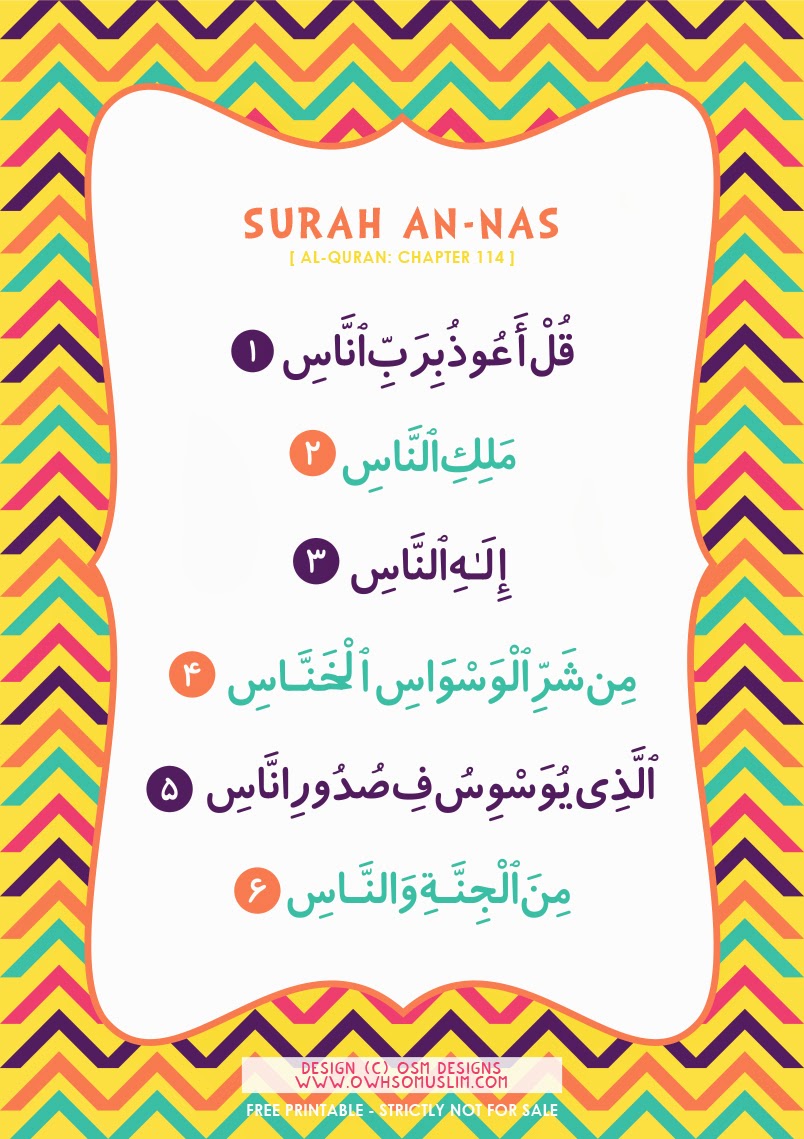 SURAH AN-NAS
[ AL-QURAN: CHAPTER 114 ]
قُلْ أَعُوذُ بِرَبِّ ٱنَّاسِ ۱
مَلِكِ ٱلنَّاسِ ۲
إِلَـٰهِ ٱلنَّاسِ ۳
مِن شَرِّ ٱلْوَسْوَاسِ ٱلْخَنَّـاسِ ۴
ٱلَّذِى يُوَسْوِسُ فِ صُدُورِ انَّاسِ ۵
مِنَ ٱلْجِنَّـةِ وَالنَّـاسِ ۶
DESIGN (C) OSM DESIGNS
WWW.OWHSOMUSLIM.COM
FREE PRINTABLE - STRICTLY NOT FOR SALE